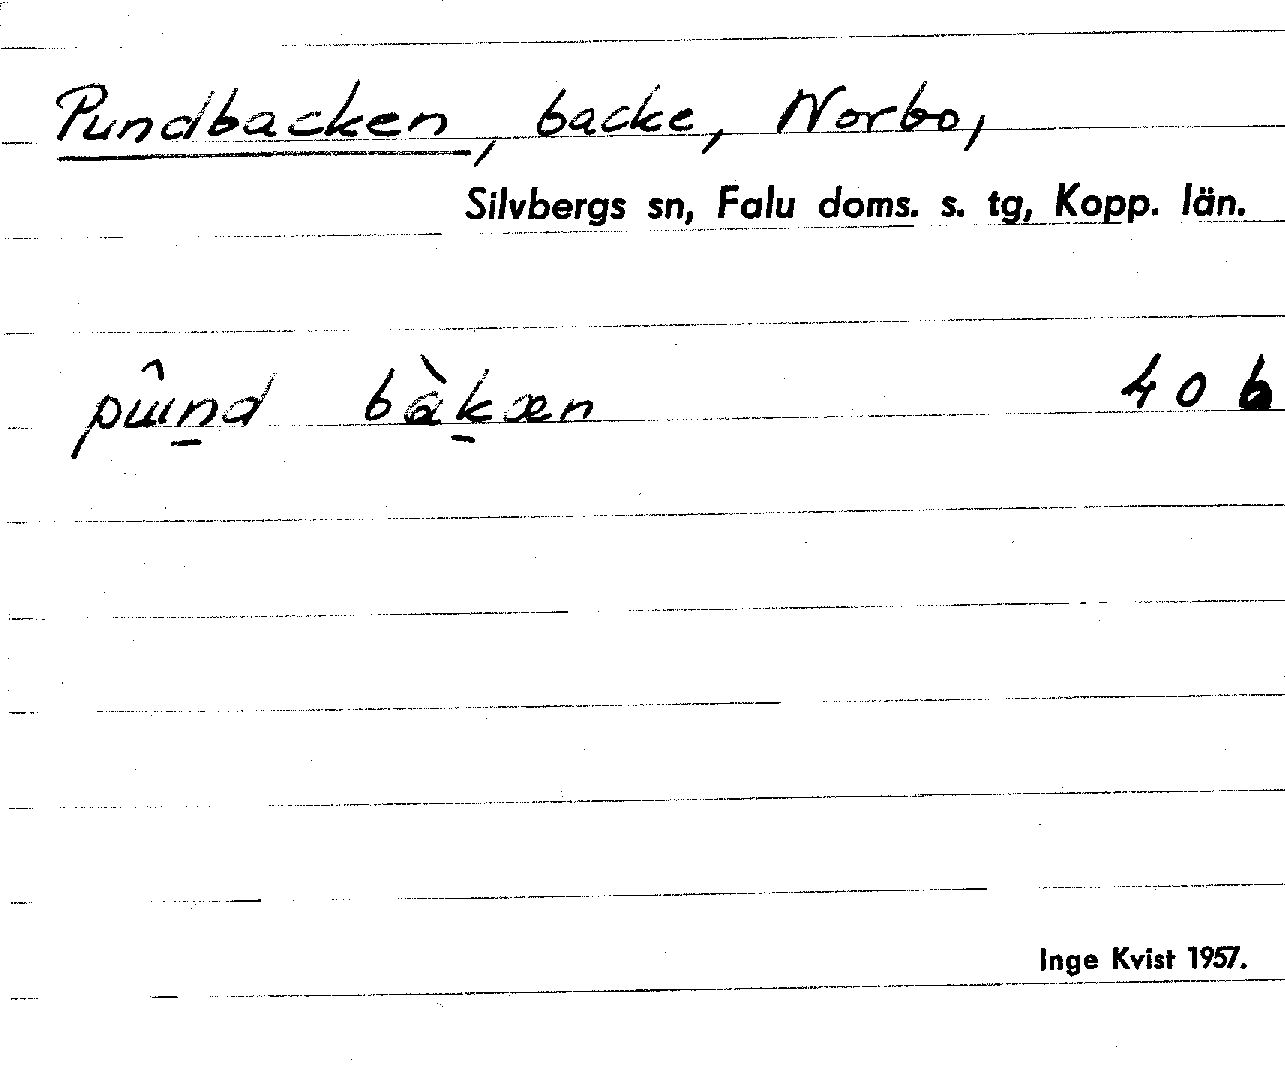 Pundbacken, backe, Norbo,
Silvbergs sn, Falu doms. s. tg, Kopp. län.
pɯ̂n̠d bàk̠æn 40 b
Inge Kvist 1957.